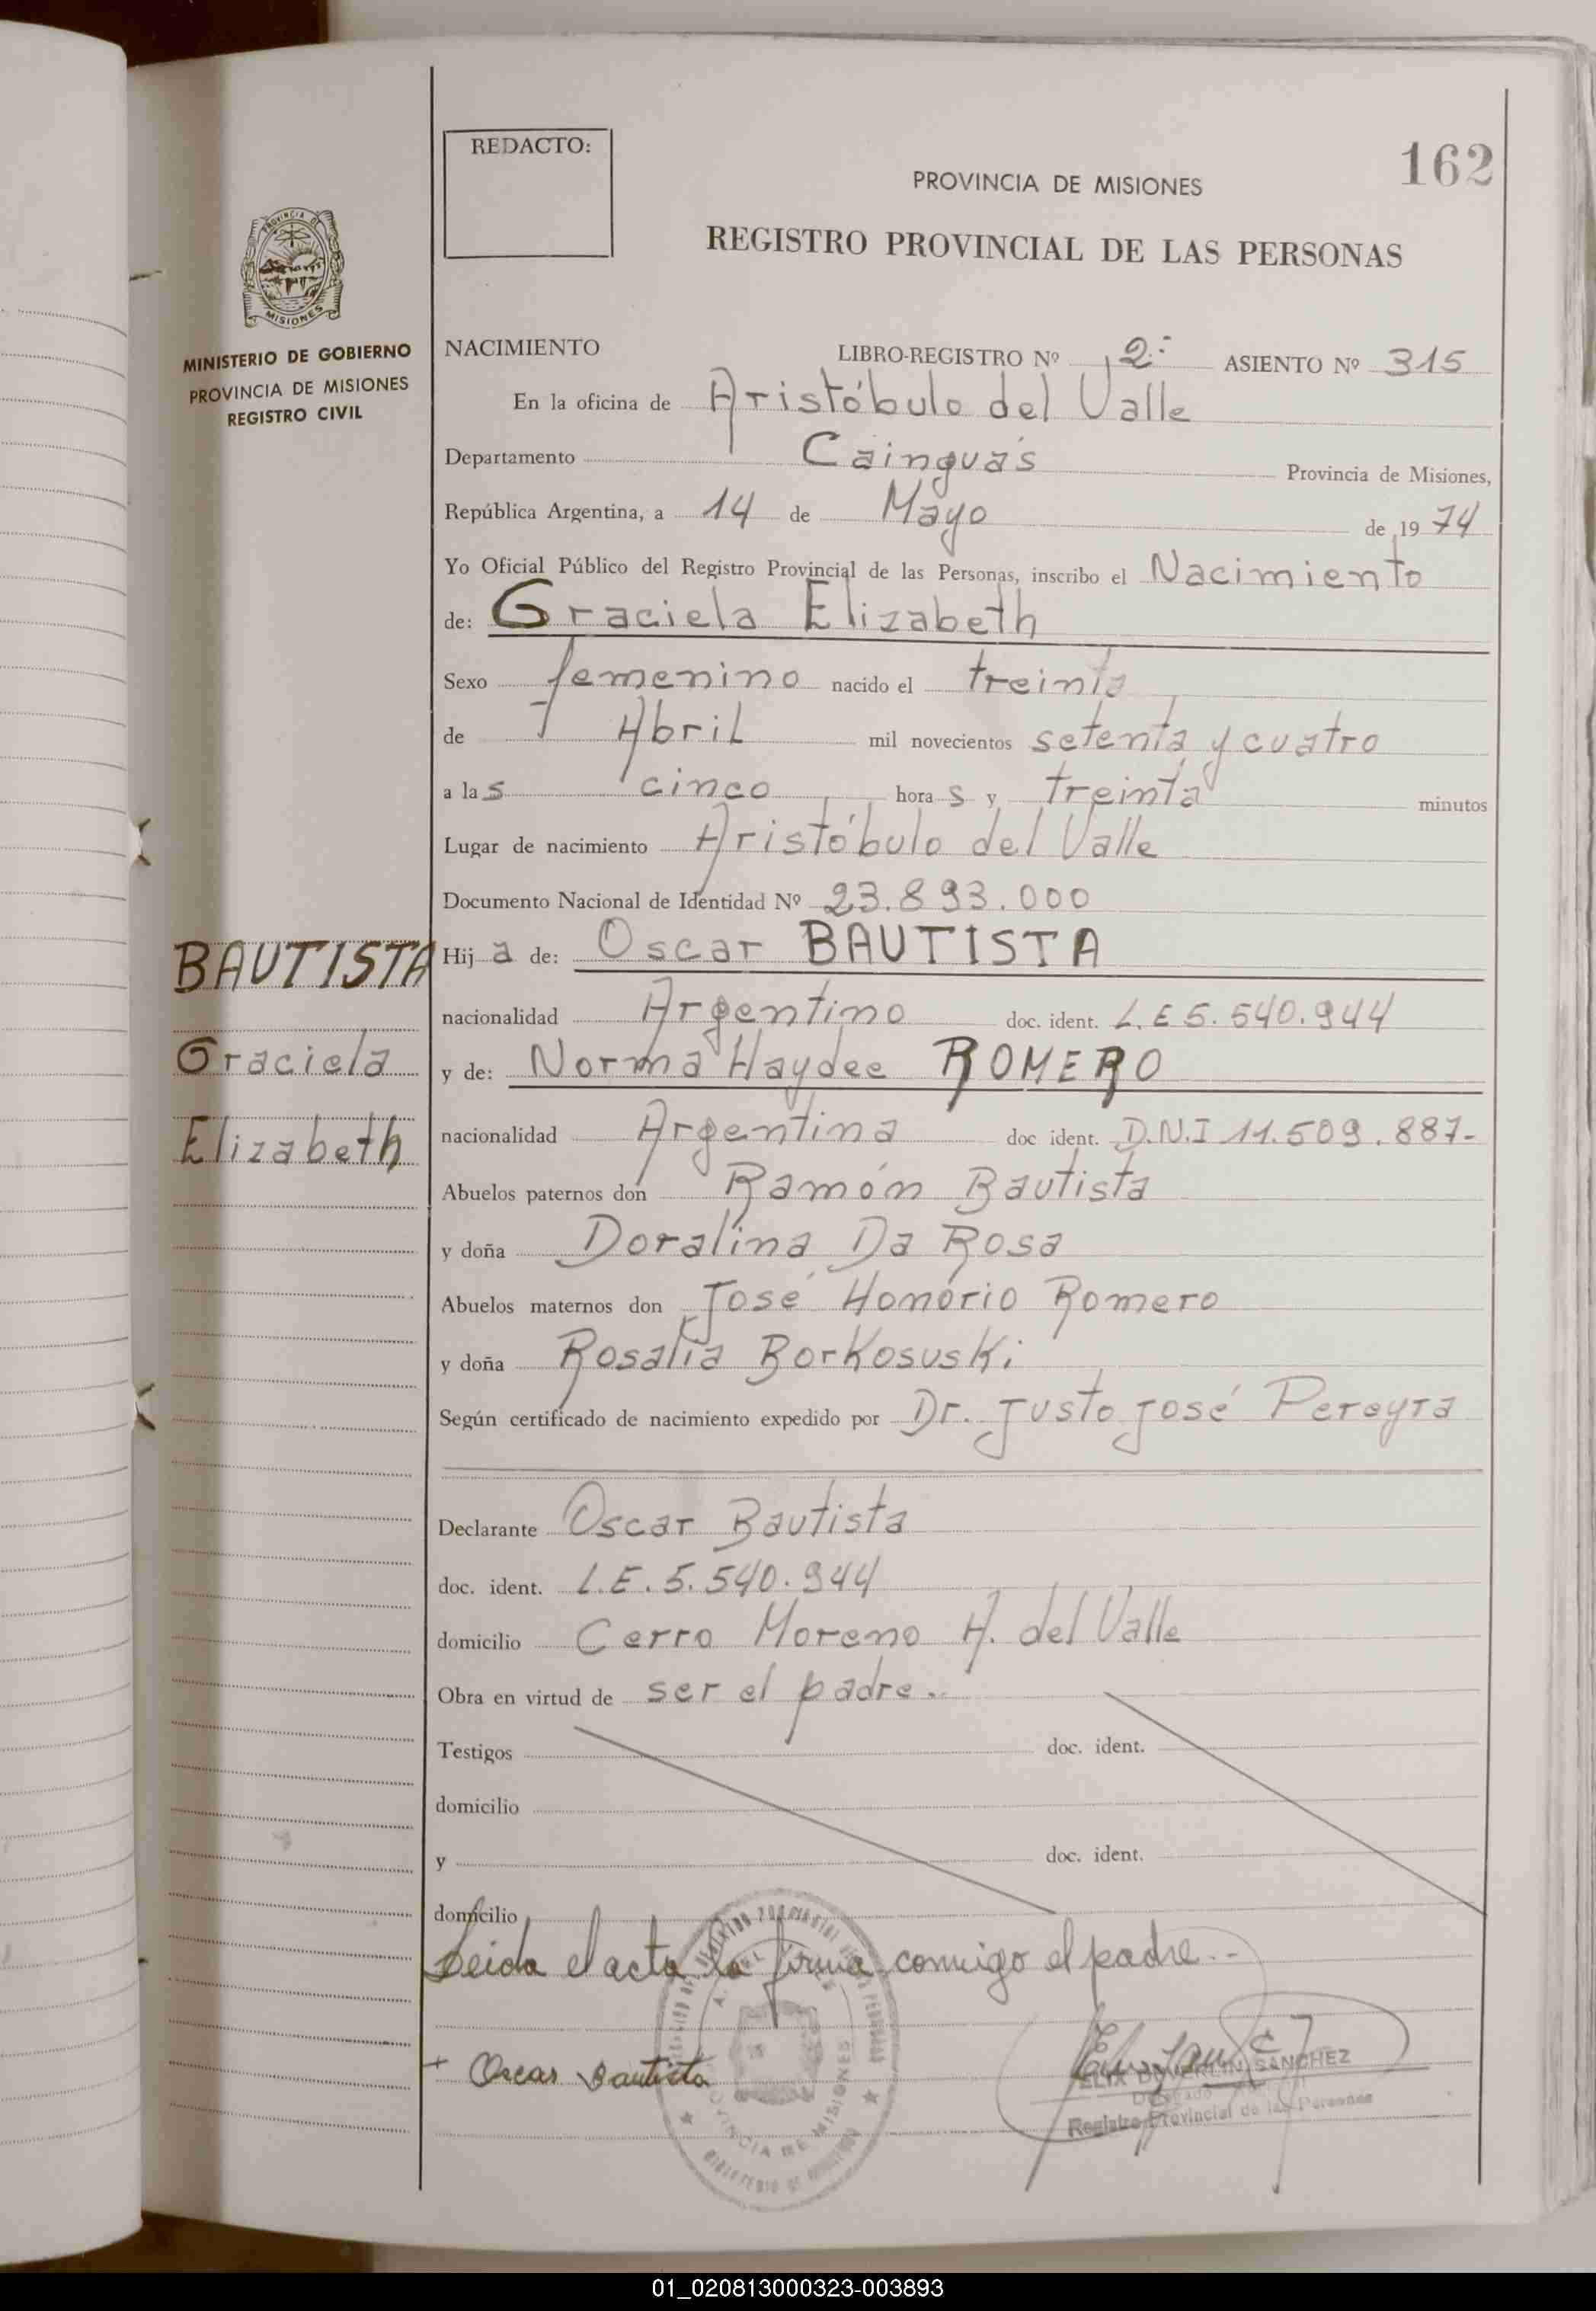 REDACTO:
162
PROVINCIA DE MISIONES
REGISTRO PROVINCIAL DE LAS PERSONAS
PROVINCIA DE
MISIONES
MINISTERIO DE GOBIERNO
PROVINCIA DE MISIONES
REGISTRO CIVIL
NACIMIENTO LIBRO-REGISTRO Nº 2º ASIENTO Nº 315
En la oficina de Aristóbulo del Valle
Departamento Cainguás Provincia de Misiones,
República Argentina, a 14 de Mayo de 1974
Yo Oficial Público del Registro Provincial de las Personas, inscribo el Nacimiento
de: Graciela Elizabeth
Sexo femenino nacido el treinta
de Abril mil novecientos setenta y cuatro
a las cinco horas y treinta minutos
Lugar de nacimiento Aristóbulo del Valle
Documento Nacional de Identidad Nº 23.893.000
BAUTISTA
Graciela
Elizabeth
Hija de: Oscar BAUTISTA
nacionalidad Argentino doc. ident. L.E 5.540.944
y de: Norma Haydee ROMERO
nacionalidad Argentina doc ident. D.N.I 11.509.887-
Abuelos paternos don Ramón Bautista
y doña Doralina Da Rosa
Abuelos maternos don José Honório Romero
y doña Rosalia Borkosuski
Según certificado de nacimiento expedido por Dr. Justo José Pereyra
Declarante Oscar Bautista
doc. ident. L.E. 5.540.944
domicilio Cerro Moreno A. del Valle
Obra en virtud de ser el padre.
Testigos doc. ident.
domicilio
y doc. ident.
domicilio
Leida el acta la firma conmigo el padre.-
Oscar Bautista
SANCHEZ
Registro Provincial de las Personas
PROVINCIA DE MISIONES
01_020813000323-003893